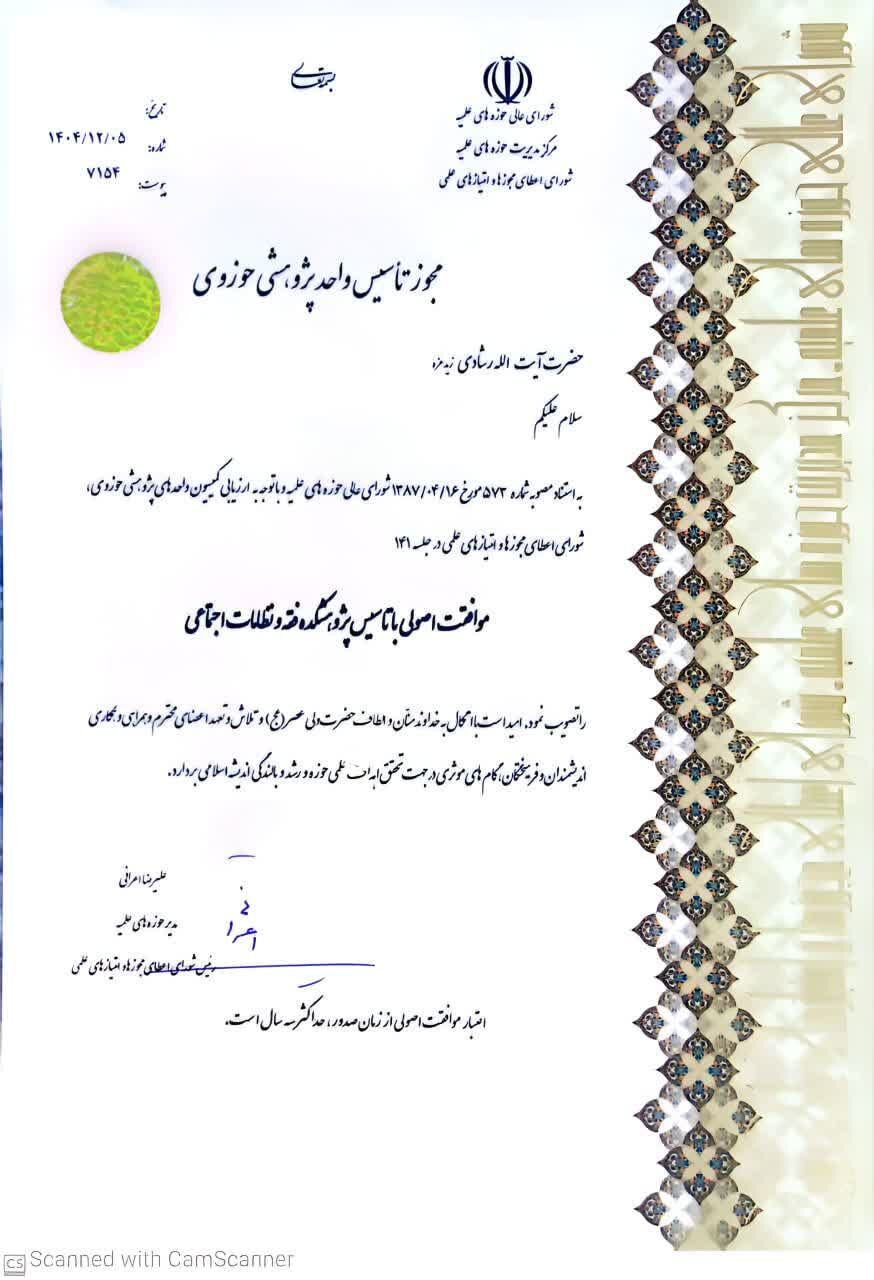 بسمه تعالی
شورای عالی حوزه های علمیه
مرکز مدیریت حوزه های علمیه
شورای اعطای مجوزها و امتیازهای علمی
تاریخ:
۱۴۰۴/۱۲/۰۵
شماره:
۷۱۵۴
پیوست:
مجوز تأسیس واحد پژوهشی حوزوی
حضرت آیت الله رشادی زید عزه
سلام علیکم
به استناد مصوبه شماره ۵۷۳ مورخ ۱۳۸۷/۰۴/۱۶ شورای عالی حوزه های علمیه و با توجه به ارزیابی کمیسیون واحدهای پژوهشی حوزوی،
شورای اعطای مجوزها و امتیازهای علمی در جلسه ۱۴۱
موافقت اصولی با تاسیس پژوهشکده فقه و نظامات اجتماعی
را تصویب نمود. امید است با اتکال به خداوند منّان و الطاف حضرت ولی عصر (عج) و تلاش و تعهد اعضای محترم و همراهی و همکاری
اندیشمندان و فرهیختگان، گام های موثری در جهت تحقق اهداف علمی حوزه و رشد و بالندگی اندیشه اسلامی بردارد.
علیرضا اعرافی
مدیر حوزه های علمیه
رئیس شورای اعطای مجوزها و امتیازهای علمی
اعتبار موافقت اصولی از زمان صدور، حداکثر سه سال است.
CS Scanned with CamScanner